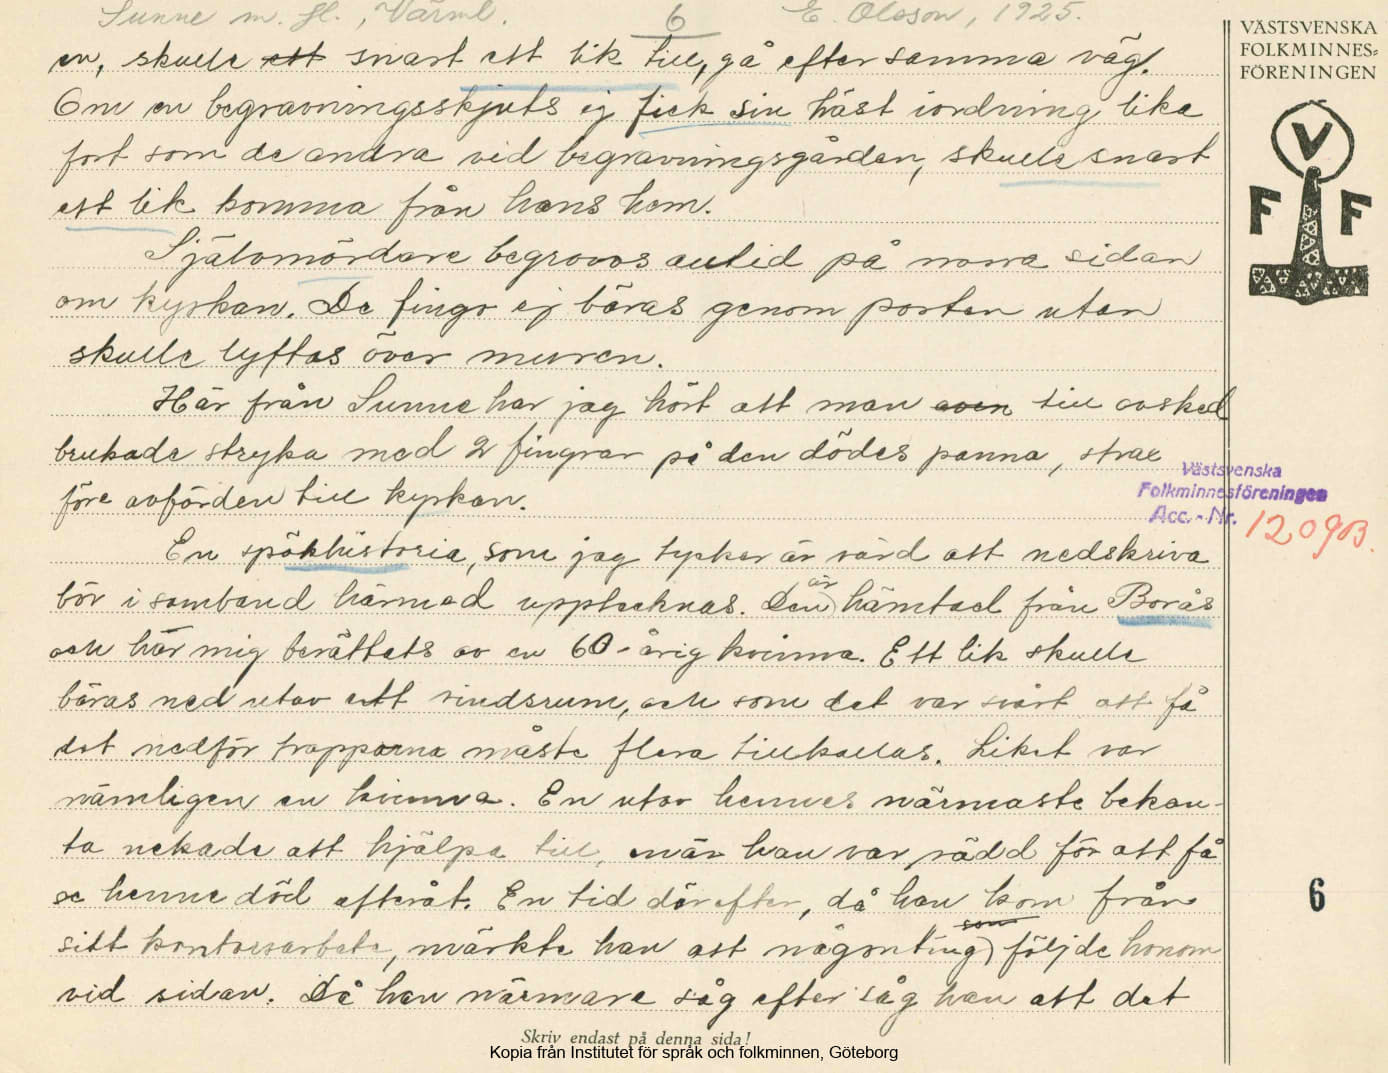 Sunne m. fl., Värml. 6 E. Olsson, 1925.
en, skulle ett snart ett lik till, gå efter samma väg.
Om en begravningsskjuts ej fick sin häst iordning lika
fort som de andra vid begravningsgården, skulle snart
ett lik komma från hans hem.
Självmördare begrovos alltid på norra sidan
om kyrkan. De fingo ej bäras genom porten utan
skulle lyftas över muren.
Här från Sunne har jag hört att man även till avsked
brukade stryka med 2 fingrar på den dödes panna, strax
före avfärden till kyrkan.
En spökhistoria, som jag tycker är värd att nedskriva
bör i samband härmed upptecknas. Den är hämtad från Borås
och har mig berättats av en 60-årig kvinna. Ett lik skulle
bäras ned utav ett vindsrum, och som det var svårt att få
det nedför trapporna måste flera tillkallas. Liket var
nämligen en kvinna. En utav hennes närmaste bekan-
ta nekade att hjälpa till, när han var rädd för att få
se henne död efteråt. En tid därefter, då han kom från
sitt kontorsarbete, märkte han att någonting som följde honom
vid sidan. Då han närmare såg efter såg han att det
Skriv endast på denna sida!
Kopia från Institutet för språk och folkminnen, Göteborg
VÄSTSVENSKA
FOLKMINNES=
FÖRENINGEN
V
F F
Västsvenska
Folkminnesföreningen
Acc.-Nr. 1209B.
6